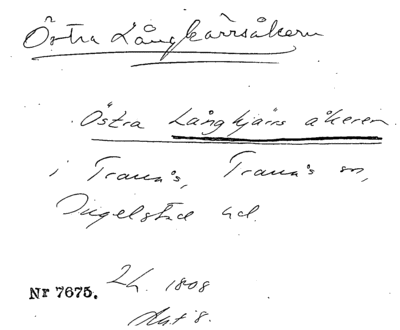 Östra Långkärrsåkern
Östra Långkjärrs åkeren
i Tranås, Tranås sn,
Ingelstad hd.
Nr 7675. 2h. 1808
Akt 8.